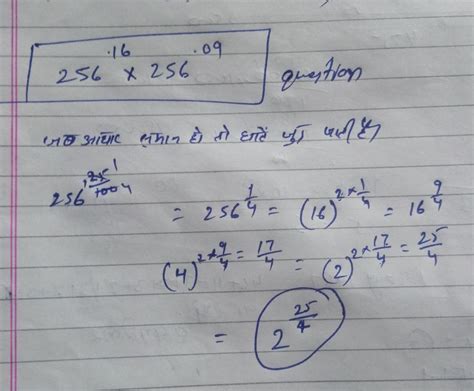 256^.16 × 256^.09 question
जब आधार समान हो तो घातें जुड़ जाती है।
256^.25/100 1/4 = 256^1/4 = (16)^2×1/4 = 16^9/4
(4)^2×9/4 = 17/4 = (2)^2×17/4 = 25/4
= 2^25/4